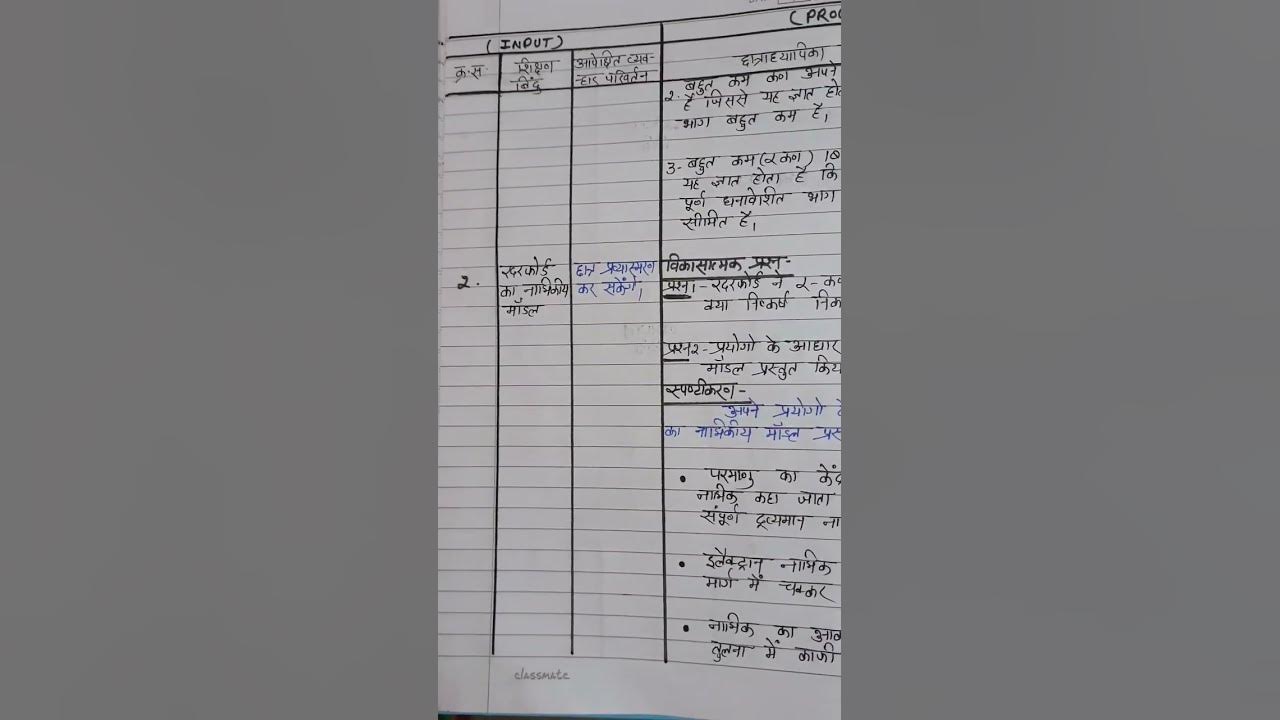 (PROC
(INPUT)
क्र.स.
शिक्षण
बिंदु
अपेक्षित व्यव-
-हार परिवर्तन
छात्राध्यापिका
२. बहुत कम कण अपने
है जिससे यह ज्ञात हो
भाग बहुत कम है।
3- बहुत कम (२ कण)
यह ज्ञात होता है कि
पूर्ण घनावेशित भाग
सीमित है।
२.
रदरफोर्ड
का नाभिकीय
मॉडल
छात्र प्रत्यास्मरण
कर सकेंगे।
विकासात्मक प्रश्न-
प्रश्न1- रदरफोर्ड ने २- क
क्या निष्कर्ष निक
प्रश्न२- प्रयोगो के आधार
मॉडल प्रस्तुत किय
स्पष्टीकरण-
अपने प्रयोगो
का नाभिकीय मॉडल प्रस
• परमाणु का केंद्र
नाभिक कहा जाता
संपूर्ण द्रव्यमान ना
• इलैक्ट्रान नाभिक
मार्ग में चक्कर
• नाभिक का आक
तुलना में काफी
classmate